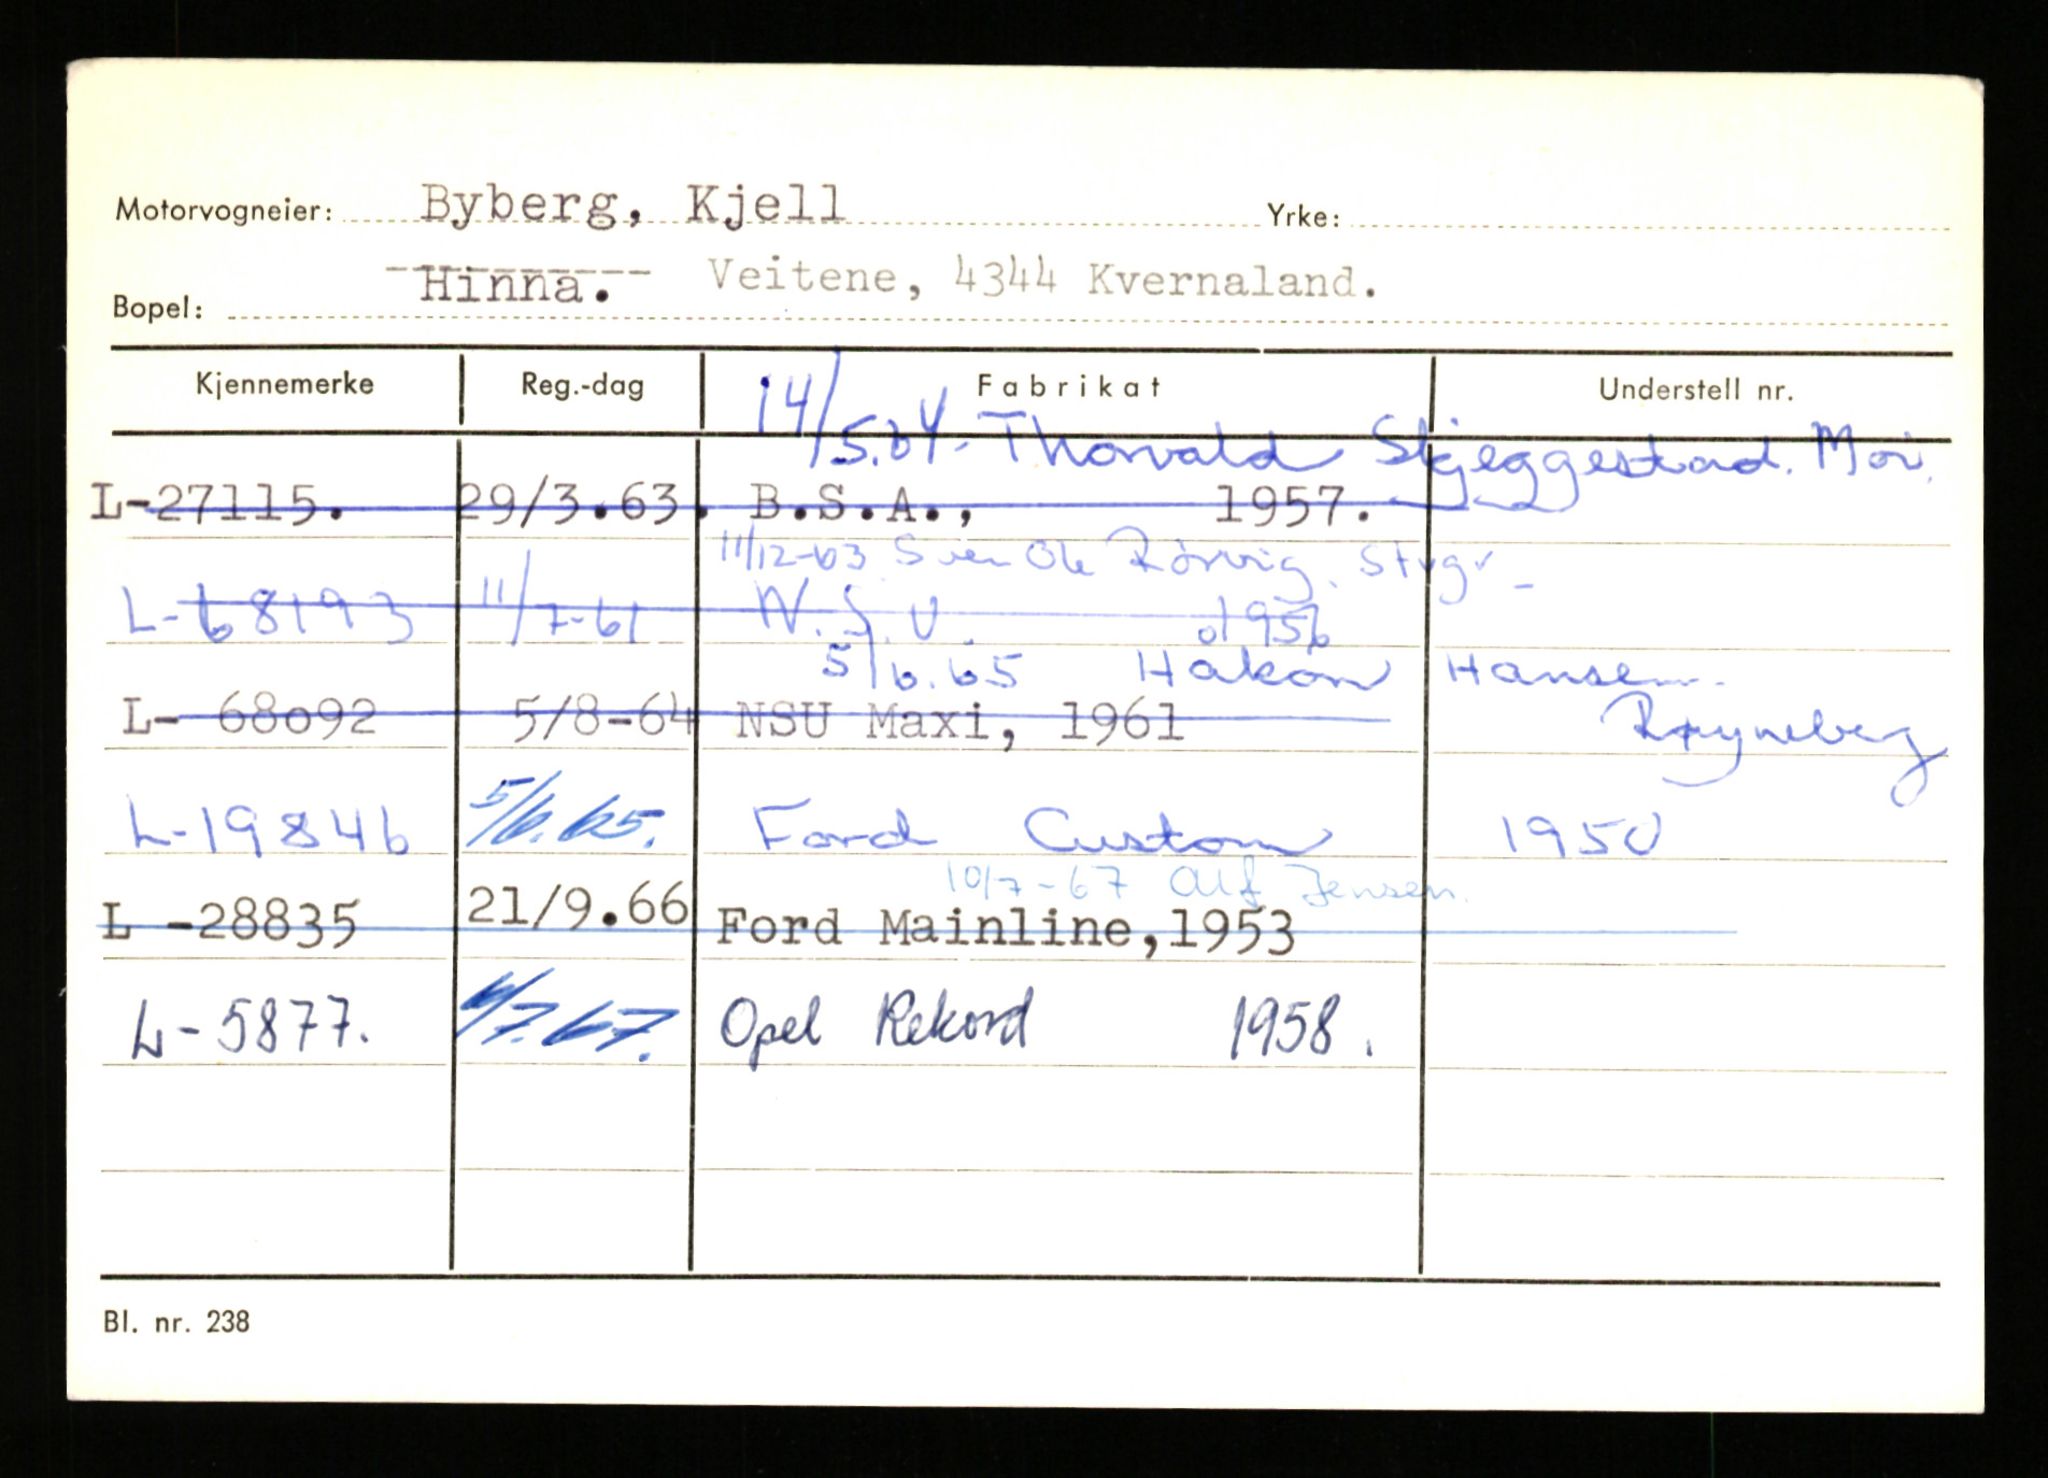 Motorvogneier: Byberg, Kjell Yrke:
Bopel: Hinna. Veitene, 4344 Kvernaland.
Kjennemerke Reg.-dag Fabrikat Understell nr.
14/5.64. Thorvald Skjeggestad. Moi.
L-27115. 29/3.63. B.S.A., 1957.
11/12-63 Sven Ole Rörvig. Stvgr
L-68193 11/7-61 N.S.U. 1956
5/6.65 Håkon Hansen.
L- 68092 5/8-64 NSU Maxi, 1961
L-19846 5/6.65. Ford Custom 1950
10/7-67 Alf Jensen.
L -28835 21/9.66 Ford Mainline,1953
L-5877. /7.67. Opel Rekord 1958.
Bl. nr. 238